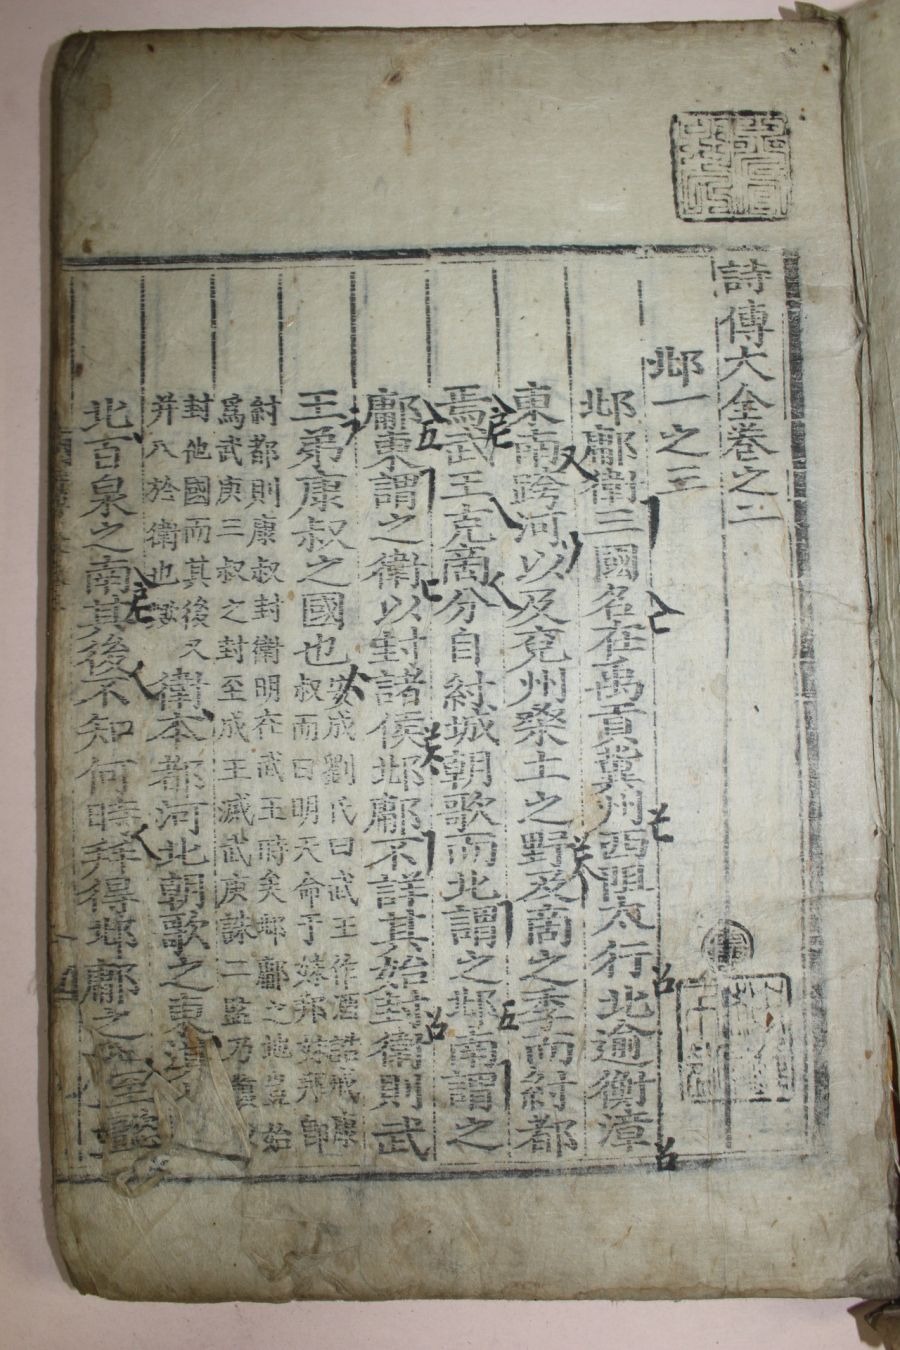 詩傳大全卷之二
邶一之三
邶鄘衛三國名在禹貢冀州西阻太行北逾衡漳
東南跨河以及兗州桑土之野及商之季而紂都
焉武王克商分自紂城朝歌而北謂之邶南謂之
鄘東謂之衛以封諸侯邶鄘不詳其始封衛則武
王弟康叔之國也
安成劉氏曰武王作酒誥戒康
叔而曰明大命于妹邦妹邦即
紂都則康叔封衛明在武王時矣邶鄘之地豈始
爲武庚三叔之封至成王滅武庚誅二監乃
封他國而其後又
并入於衛也歟
衛本都河北朝歌之東淇
北百泉之南其後不知何時并得邶鄘之